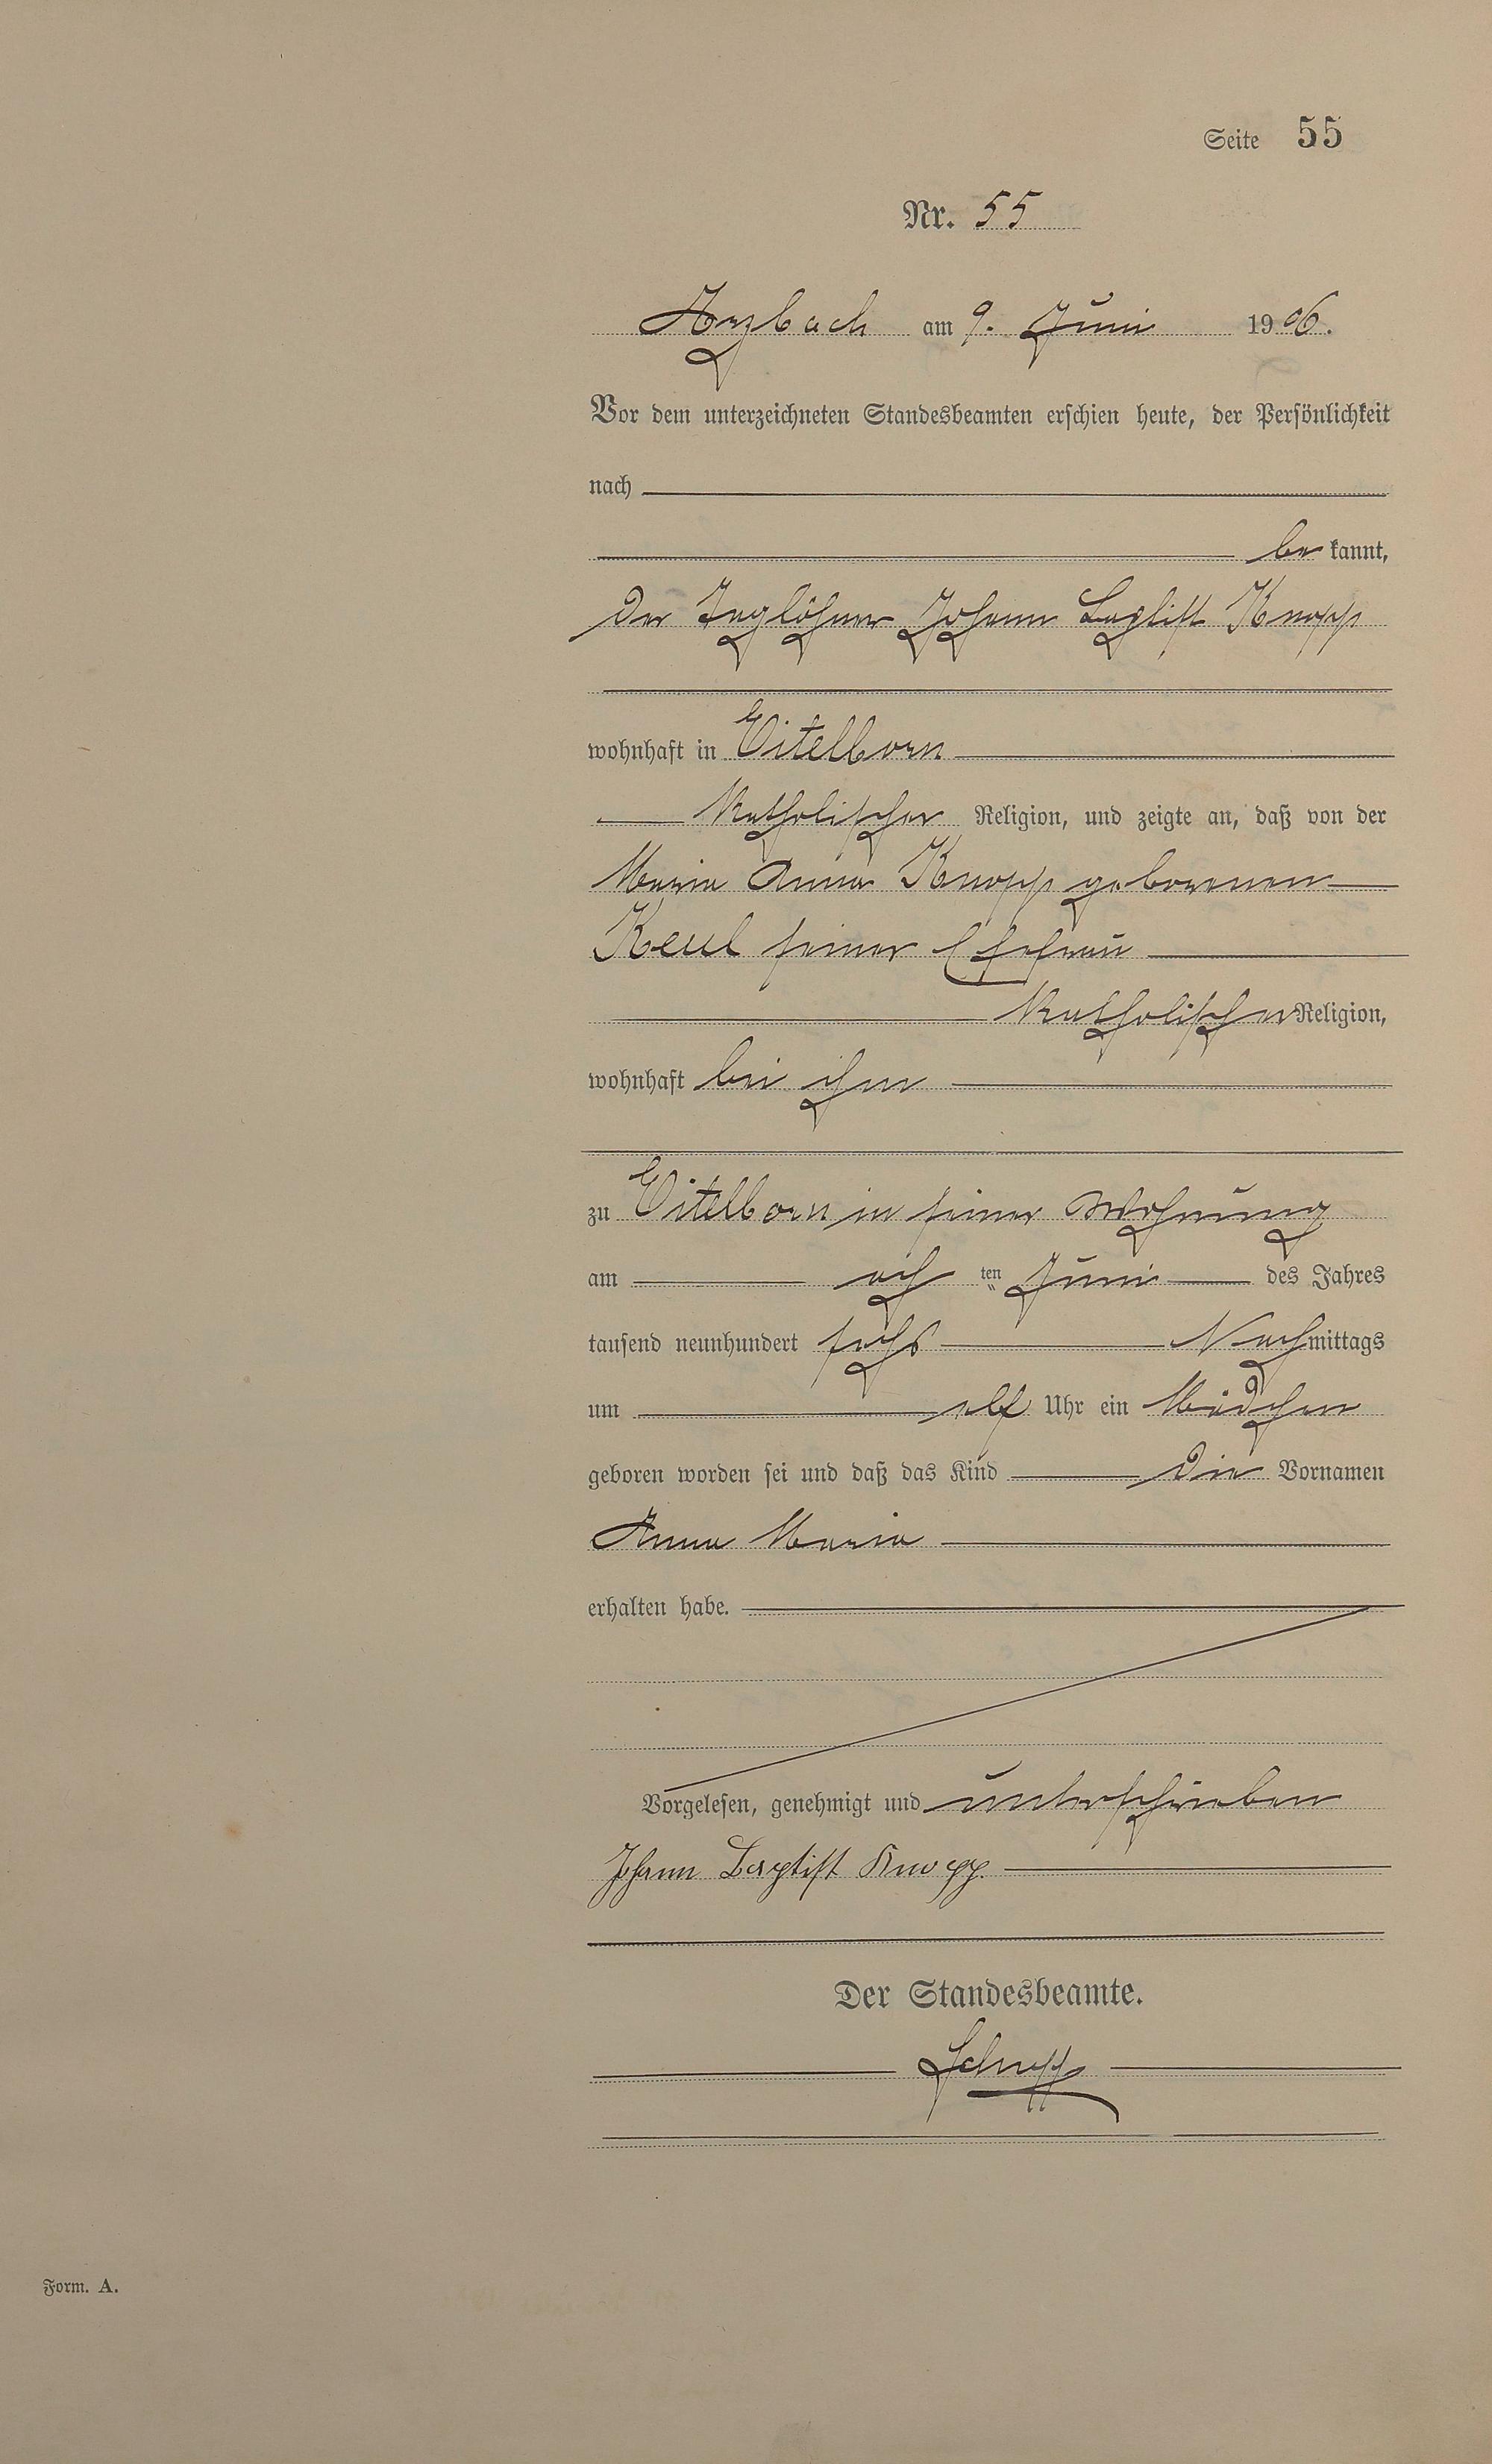 Seite 55
Nr. 55
Arzbach am 9. Juni 1906.
Vor dem unterzeichneten Standesbeamten erschien heute, der Persönlichkeit
nach
be kannt,
der Taglöhner Johann Baptist Knopp
wohnhaft in Eitelborn
katholischer Religion, und zeigte an, daß von der
Maria Anna Knopp geborenen
Keul seiner Ehefrau
katholischer Religion,
wohnhaft bei ihm
zu Eitelborn in seiner Wohnung
am ach ten Juni des Jahres
tausend neunhundert sechs Nachmittags
um elf Uhr ein Mädchen
geboren worden sei und daß das Kind die Vornamen
Anna Maria
erhalten habe.
Vorgelesen, genehmigt und unterschrieben
Johann Baptist Knopp.
Der Standesbeamte.
Form. A.